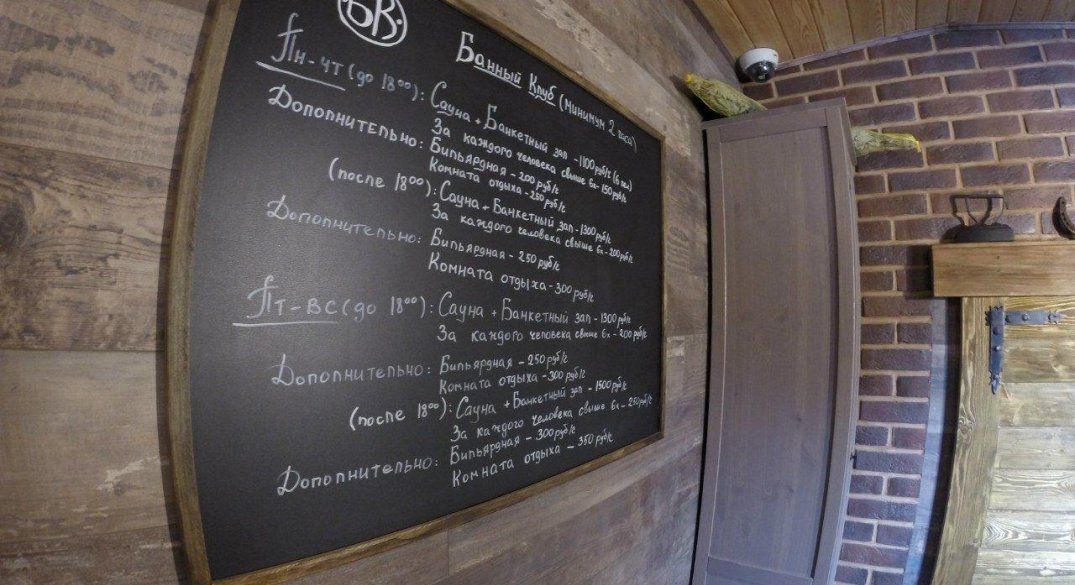 БВ
Банный Клуб (минимум 2 часа)
Пн-чт (до 18⁰⁰): Сауна + Банкетный зал - 1100 руб/ч (6 чел)
За каждого человека свыше 6х - 150 руб/ч
Дополнительно: Бильярдная - 200 руб/ч
Комната отдыха - 250 руб/ч
(после 18⁰⁰): Сауна + Банкетный зал - 1300 руб/ч
За каждого человека свыше 6х - 200 руб/ч
Дополнительно: Бильярдная - 250 руб/ч
Комната отдыха - 300 руб/ч
Пт-вс (до 18⁰⁰): Сауна + Банкетный зал - 1300 руб/ч
За каждого человека свыше 6х - 200 руб/ч
Дополнительно: Бильярдная - 250 руб/ч
Комната отдыха - 300 руб/ч
(после 18⁰⁰): Сауна + Банкетный зал - 1500 руб/ч
За каждого человека свыше 6х - 250 руб/ч
Дополнительно: Бильярдная - 300 руб/ч
Комната отдыха - 350 руб/ч